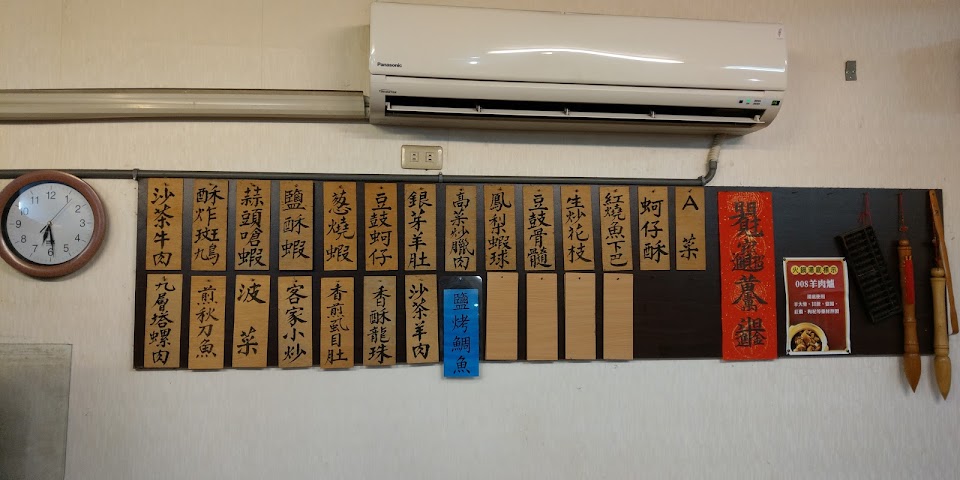 Panasonic
沙茶牛肉
酥炸斑九鳥
蒜頭嗆蝦
鹽酥蝦
葱燒蝦
豆鼓蚵仔
銀芽羊肚
高菜炒臘肉
鳳梨蝦球
豆鼓骨髓
生炒花枝
紅燒魚下巴
蚵仔酥
A菜
九層塔螺肉
煎秋刀魚
波菜
客家小炒
香煎虱目肚
香酥龍珠
沙茶羊肉
鹽烤鯛魚
008羊肉爐